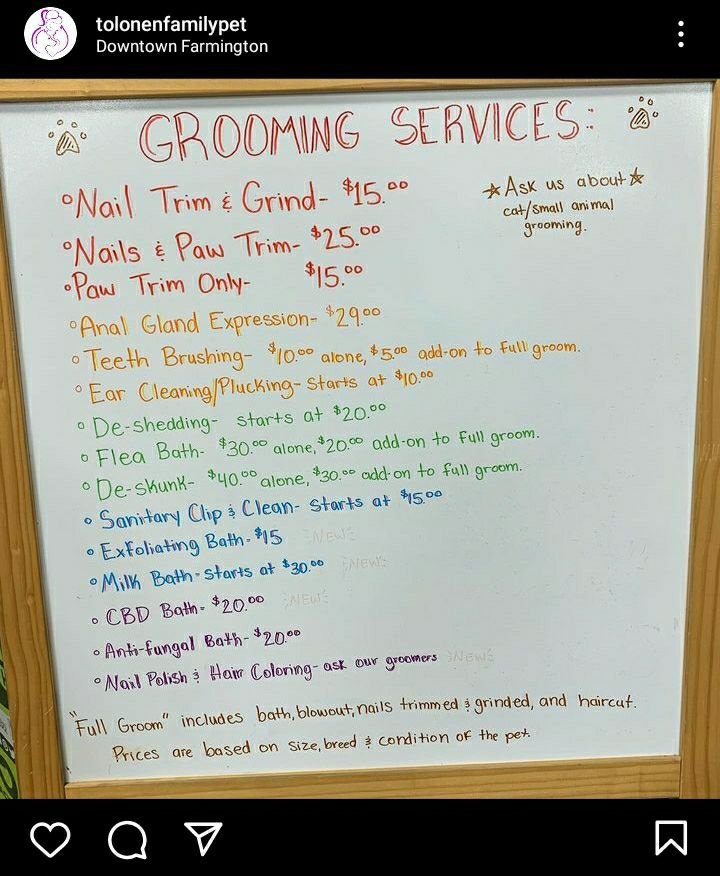 tolonenfamilypet
Downtown Farmington
GROOMING SERVICES:
°Nail Trim & Grind- $15.00
★Ask us about★
cat/small animal
grooming.
°Nails & Paw Trim- $25.00
°Paw Trim Only- $15.00
°Anal Gland Expression- $29.00
°Teeth Brushing- $10.00 alone, $5.00 add-on to full groom.
°Ear Cleaning/Plucking- Starts at $10.00
°De-shedding- starts at $20.00
°Flea Bath- $30.00 alone, $20.00 add-on to full groom.
°De-skunk- $40.00 alone, $30.00 add-on to full groom.
°Sanitary Clip & Clean- Starts at $15.00
°Exfoliating Bath-$15 NEW
°Milk Bath-Starts at $30.00 NEW
°CBD Bath- $20.00 NEW
°Anti-fungal Bath-$20.00
°Nail Polish & Hair Coloring- ask our groomers NEW
"Full Groom" includes bath, blowout, nails trimmed & grinded, and haircut.
Prices are based on size, breed & condition of the pet.